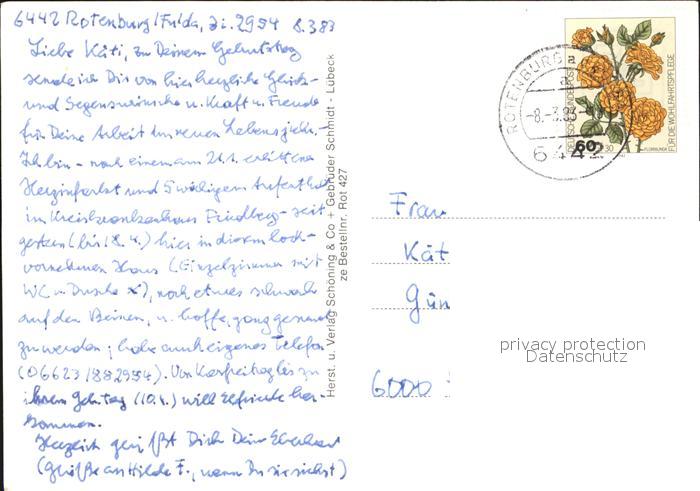 6442 Rotenburg/Fulda, Zi. 2954 8.3.83
Liebe Käti, zu Deinem Geburtstag
sende ich Dir von hier herzliche Glück-
und Segenswünsche u. Kraft u. Freude
für Deine Arbeit im neuen Lebensjahr.
Ich bin - nach einem am 21.1. erlittenen
Herzinfarkt und 5 wöchigem Aufenthalt
im Kreiskrankenhaus Friedberg - seit
gestern (bis 18.4.) hier in diesem hoch-
vornehmen Haus (Einzelzimmer mit
WC u. Dusche), noch etwas schwach
auf den Beinen, u. hoffe, ganz gesund
zu werden; habe auch eigenes Telefon
(06623/882954). Von Karfreitag bis zu
ihrem Gebtag (10.4.) will Elfriede her-
kommen.
Herzlich grüßt Dich Dein Eberhard
(Grüße an Hilde F., wenn Du sie siehst)
Herst. u. Verlag Schöning & Co + Gebrüder Schmidt - Lübeck
ze Bestellnr. Rot 427
ROTENBURG a
-8.-3.83-
6442
DEUTSCHE BUNDESPOST
60+30
FLORIBUNDA
FÜR DIE WOHLFAHRTSPFLEGE
Frau
Kät
Gün
6000
privacy protection
Datenschutz